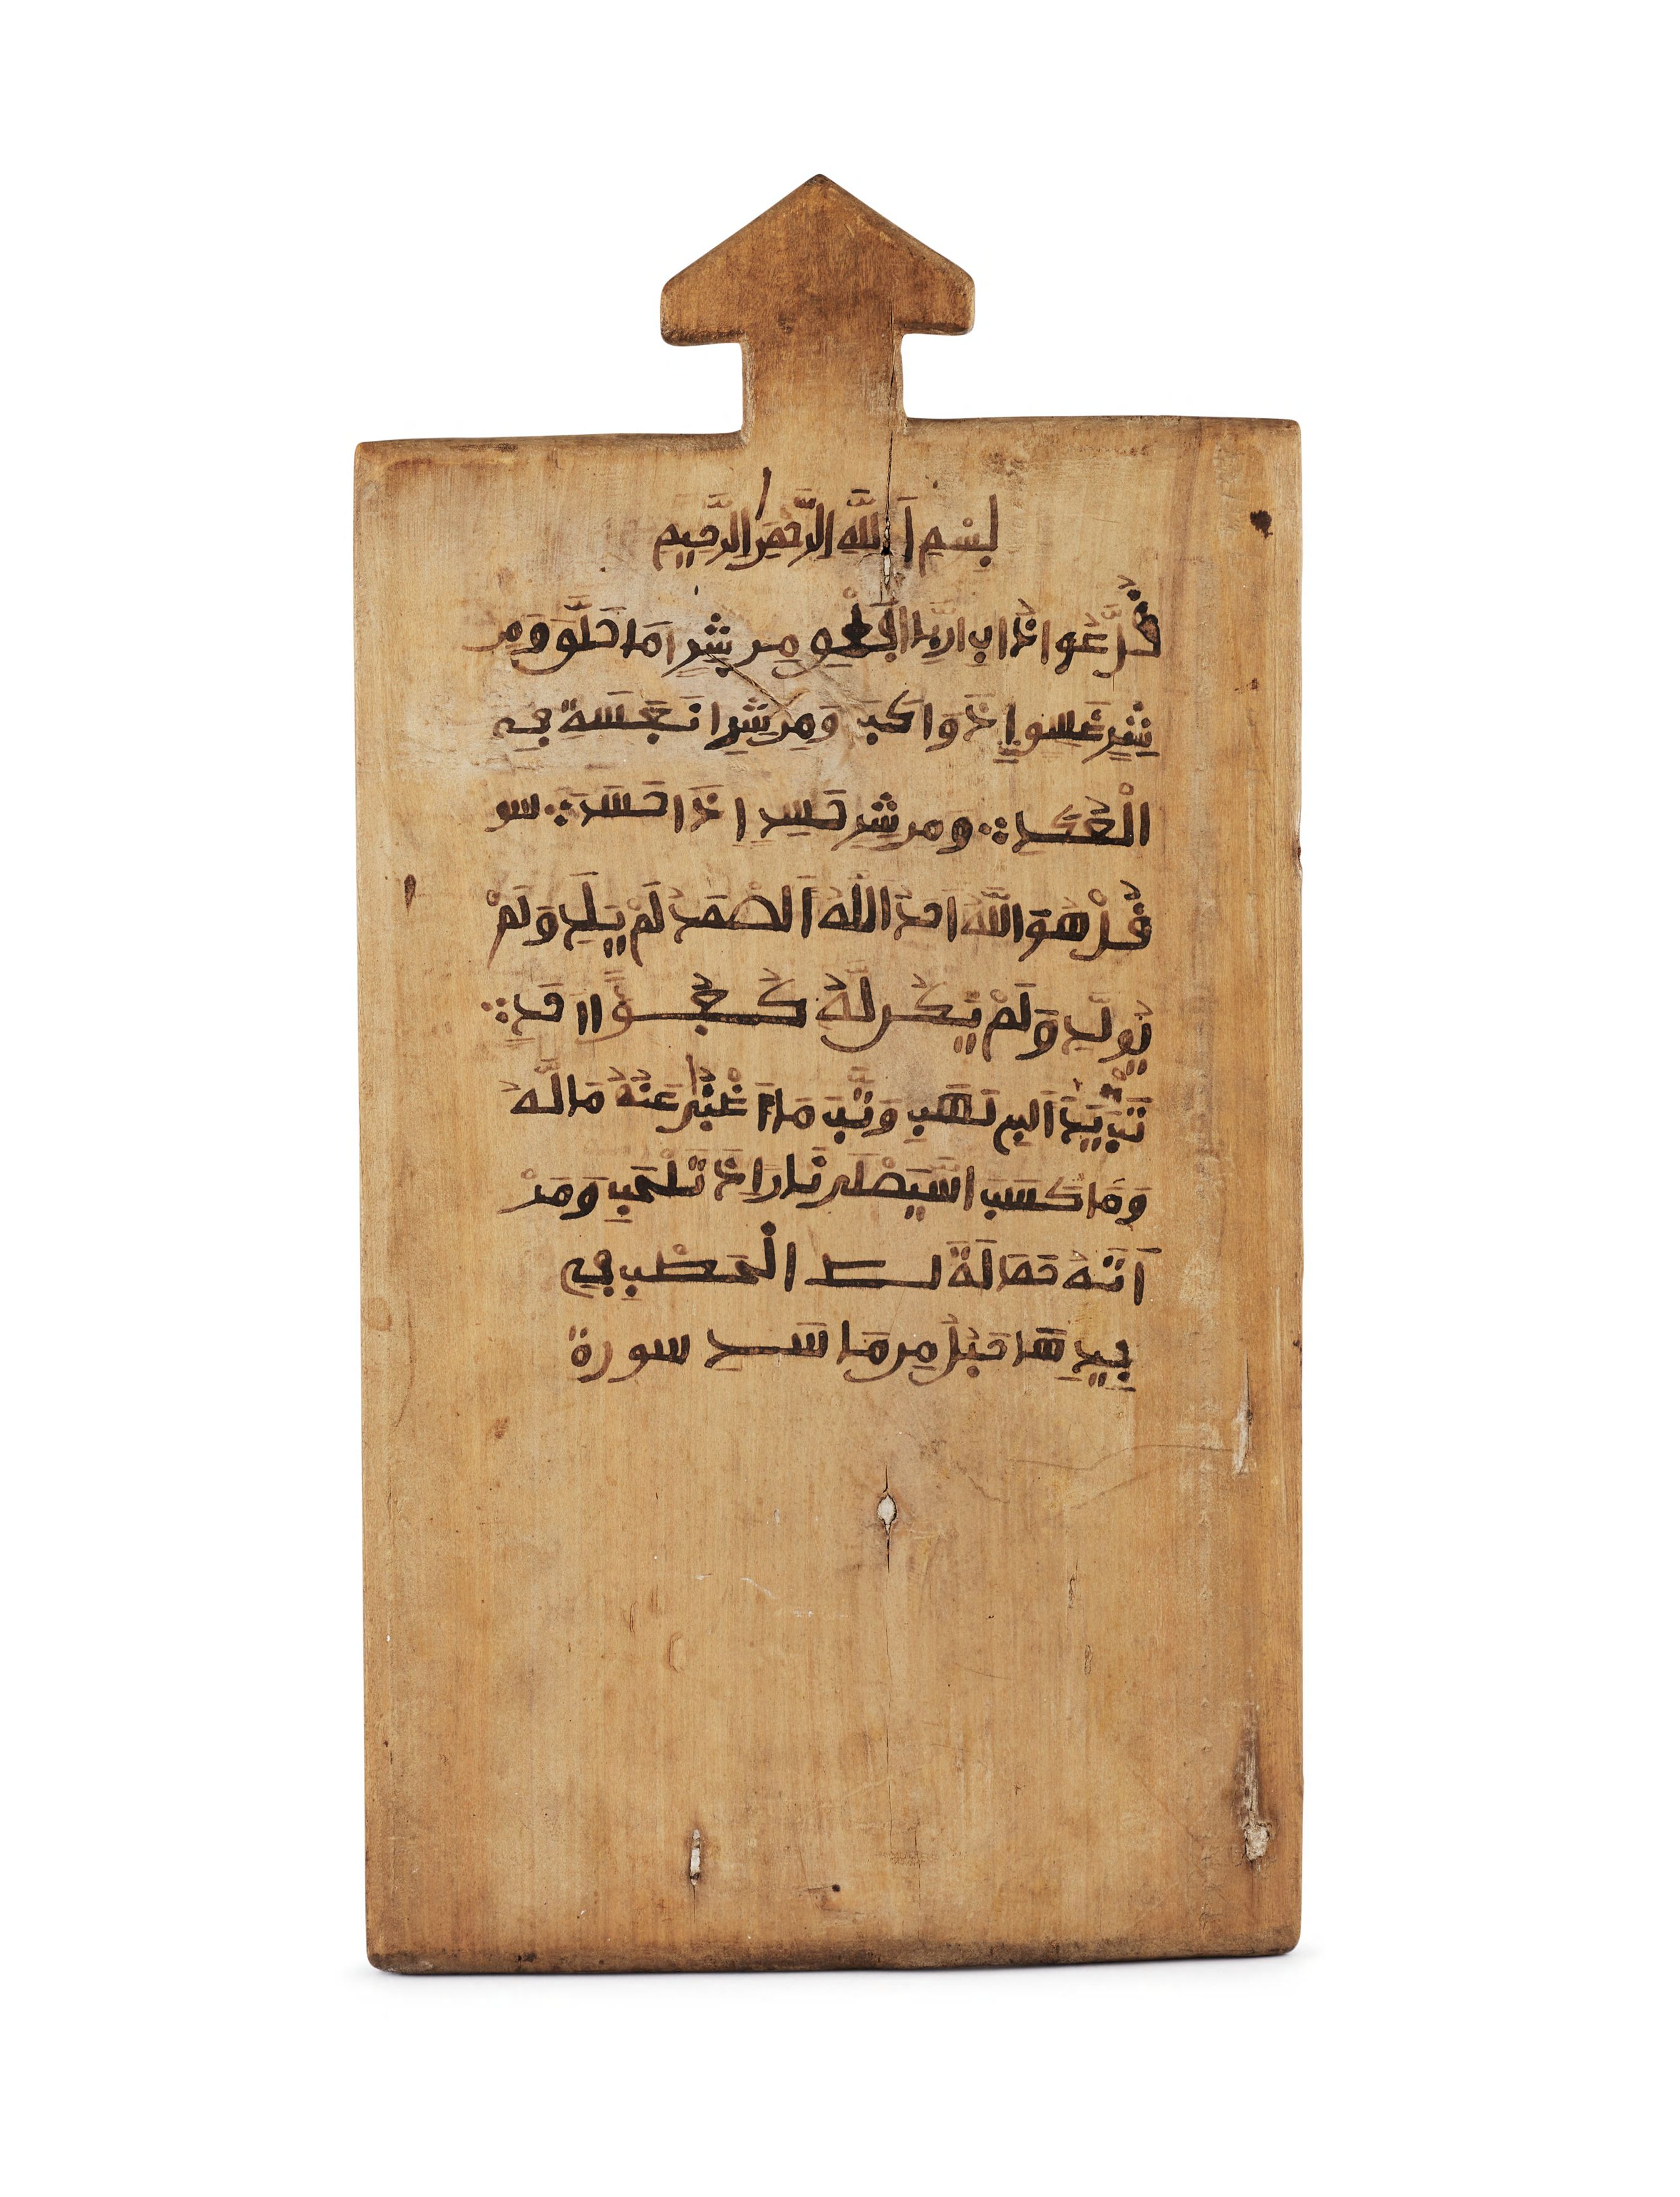 بِسْمِ اَللَّهِ الرَّحْمَنِ الرَّحِيمِ
فُلَّعُوا ذُ ابِ ارَبِّ الْبَلَعِ مِن شِرِ امَا خَلَو وَمِن
شِرِ غَسِوِ اِذَ وَاكَبَ وَمِن شِرِ انَبَّسَةِ فِي
الْعُكَدِ وَمِن شِرِ حَسِدِ اِذَا حَسَدَ سو
فُلْ هُوَ اللَّهُ اَحَدُ اللَّهُ اَلصْمَدُ لَمْ يَلِدِ وَلَمْ
يُولَدِ وَلَمْ يَكُن لَّهُ كُفُؤًا احَدِ
تَبَّتْ يَدَا اَبِي لَهَبِ وَتَبَّ مَا اَغْنَى عَنْهُ مَالَهُ
وَمَا كَسَبَ اسَّيَصْلَى نَارًا ذَ تَلْحَبِ وَمَرْ
اَتَهُ حَمَالَةَ الْحَطْبِ فِي
جِيدِهَا حَبْلُ مِن مَا سَدِ سورة